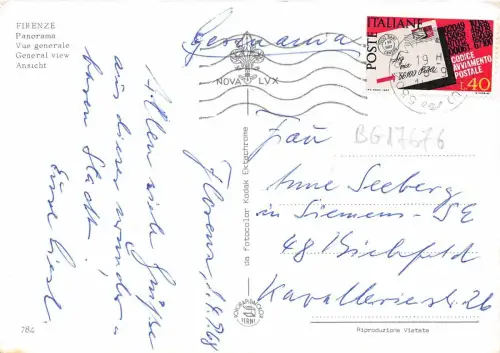 FIRENZE
Panorama
Vue generale
General view
Ansicht
Germania
NOVA LVX
POSTE ITALIANE
CODICE
AVVIAMENTO
POSTALE
L.40
19
BG17676
Allen viele Grüße
aus dieser wunder-
baren Stadt.
Eure
Florenz, 1.9.68
Frau
Anne Seeberg
in Siemens-SE
48 Bielefeld
Kavalleriestr. 26
da fotocolor Kodak Ektachrome
TERNI
784
Riproduzione Vietata